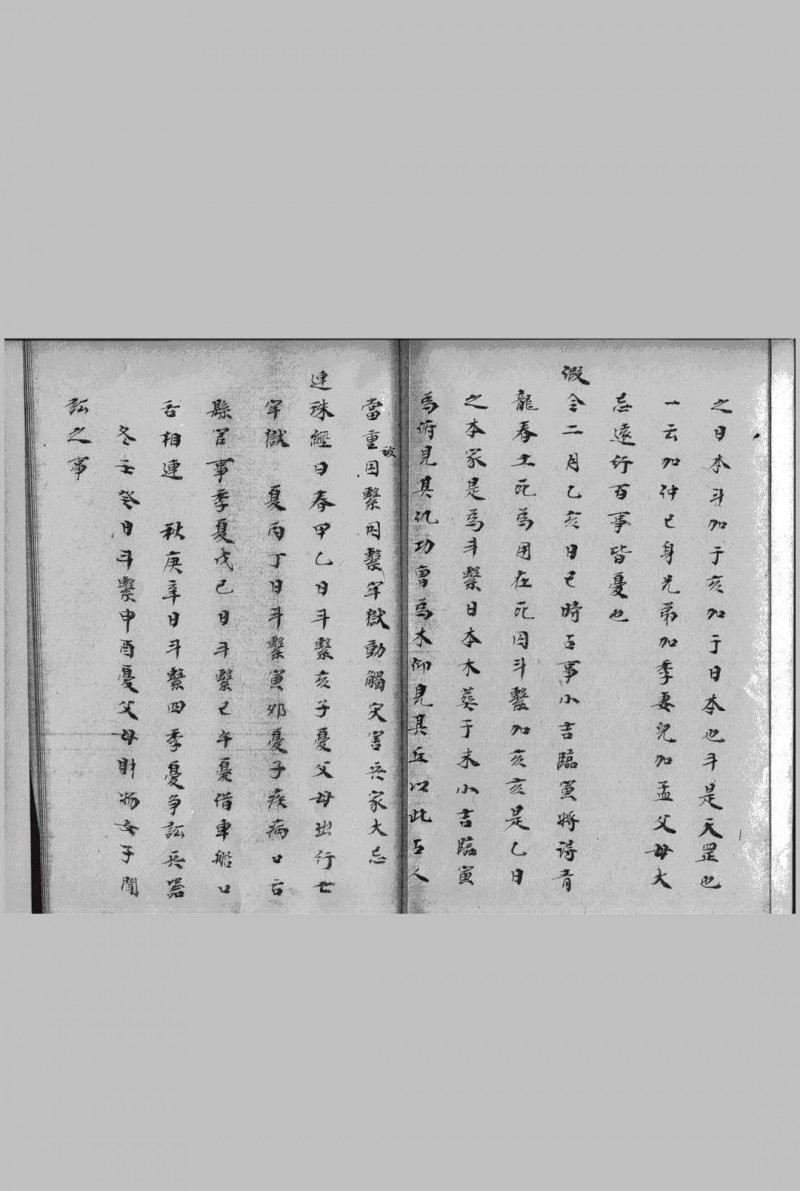 之日本斗加于亥加于日本也斗是天罡也
一云加仲已身兄弟加季妻兒加孟父母大
忌遠行百事皆憂也
假令二月乙亥日巳時占事小吉臨寅將青
龍春土死為用在死囚斗繫加亥亥是乙日
之本家是為斗繫日本木葬于未小吉臨寅
為俯見其仇功曹為木仰見其丘以此占人
當重被囚繫囚繫牢獄動觸灾害兵家大忌
連珠經曰春甲乙日斗繫亥子憂父母出行亡
牢獄 夏丙丁日斗繫寅卯憂子疾病口舌
縣官事季夏戊己日斗繫巳午憂借車船口
舌相連 秋庚辛日斗繫四季憂争訟兵器
冬壬癸日斗繫申酉憂父母財物女子鬪
訟之事